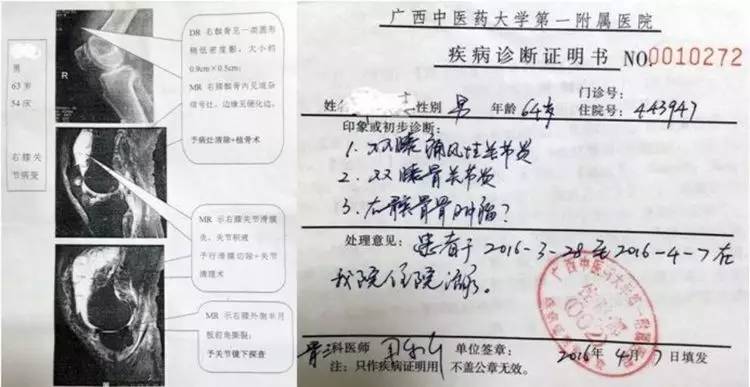 男
63 岁
54 床
右膝关
节病变
R
DR 右髌骨见一类圆形
稍低密度影，大小约
0.9cm×0.5cm；
MR 右膝髌骨内见混杂
信号灶，边缘见硬化边。
予病灶清除+植骨术
MR 示右膝关节滑膜
炎、关节积液
予行滑膜切除+关节
清理术
MR 示右膝外侧半月
板前角撕裂；
予关节镜下探查
广西中医药大学第一附属医院
疾病诊断证明书 NO.0010272
门诊号：
姓名 性别 男 年龄 64岁 住院号：443947
印象或初步诊断：
1. 双膝痛风性关节炎
2. 双膝骨关节炎
3. 右髌骨骨肿瘤？
处理意见：患者于2016-3-28至2016-4-7在
我院住院治疗。
广西中医药大学第一附属医院
骨三科医师 单位签章： 2016年4月7日填发
注：只作疾病证明用 不盖公章无效。